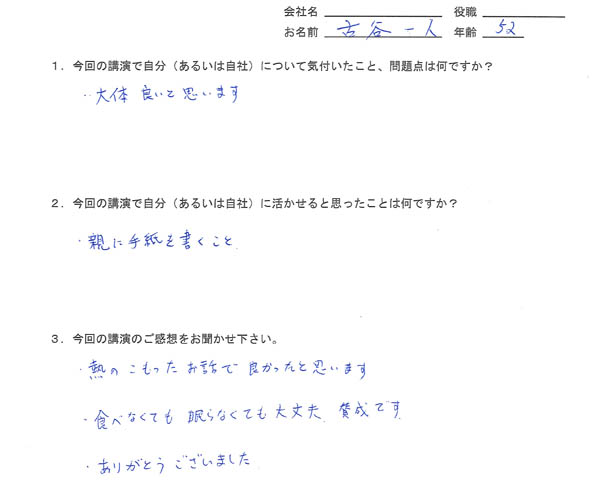 会社名 役職
お名前 古谷 一人 年齢 52
1．今回の講演で自分（あるいは自社）について気付いたこと、問題点は何ですか？
・大体 良いと思います
2．今回の講演で自分（あるいは自社）に活かせると思ったことは何ですか？
・親に手紙を書くこと
3．今回の講演のご感想をお聞かせ下さい。
・熱のこもったお話で良かったと思います
・食べなくても 眠らなくても大丈夫、賛成です
・ありがとうございました